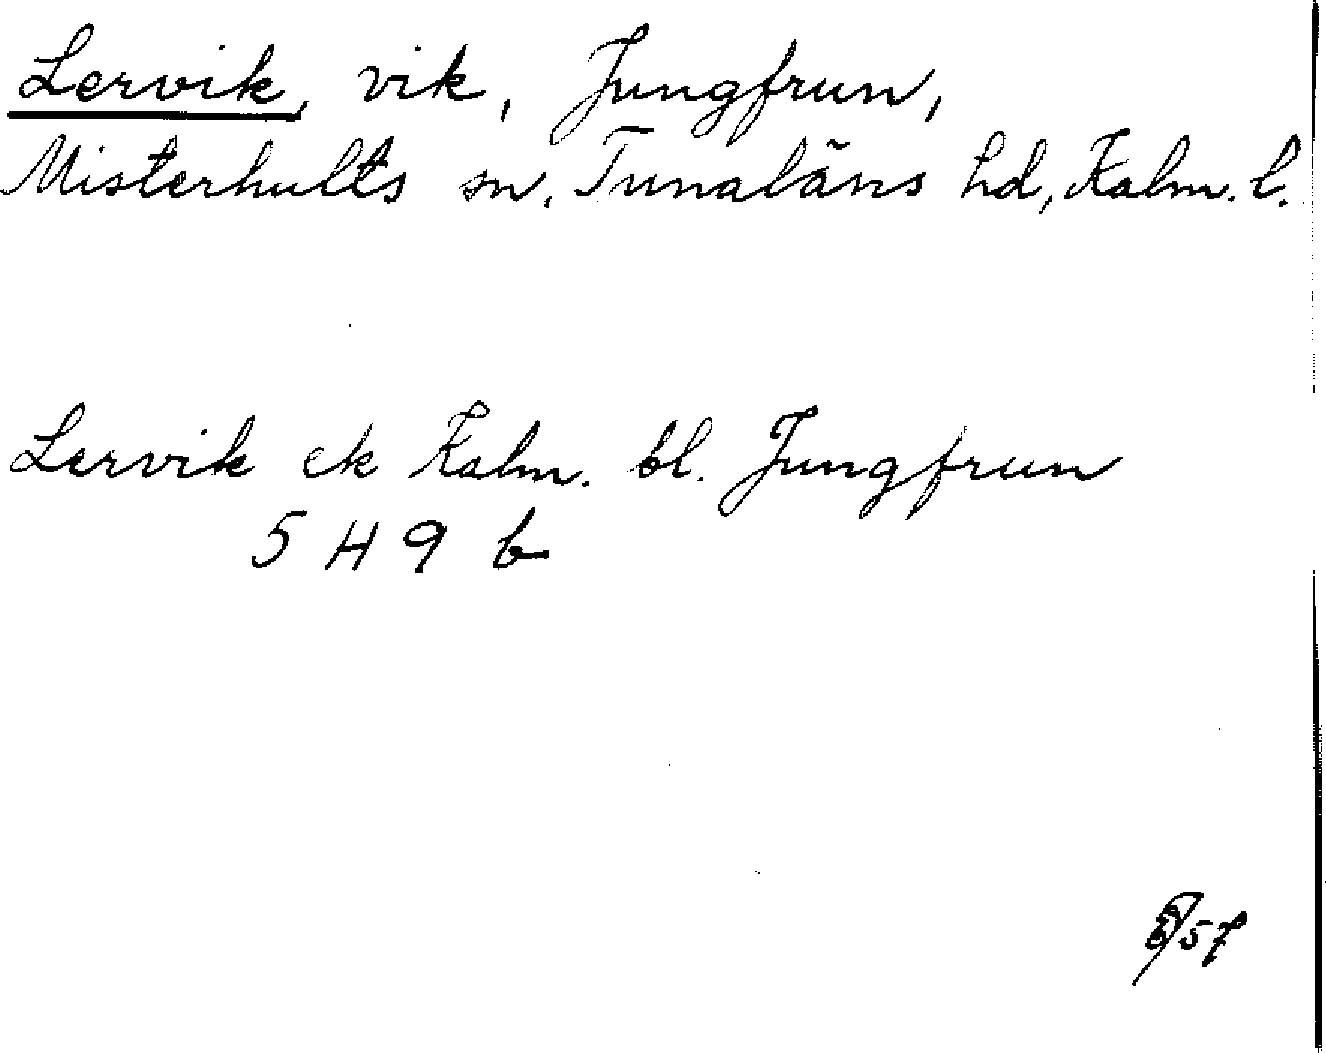 Lervik, vik, Jungfrun,
Misterhults sn, Tunaläns hd, Kalm. l.
Lervik ek Kalm. bl. Jungfrun
5 H 9 b
57